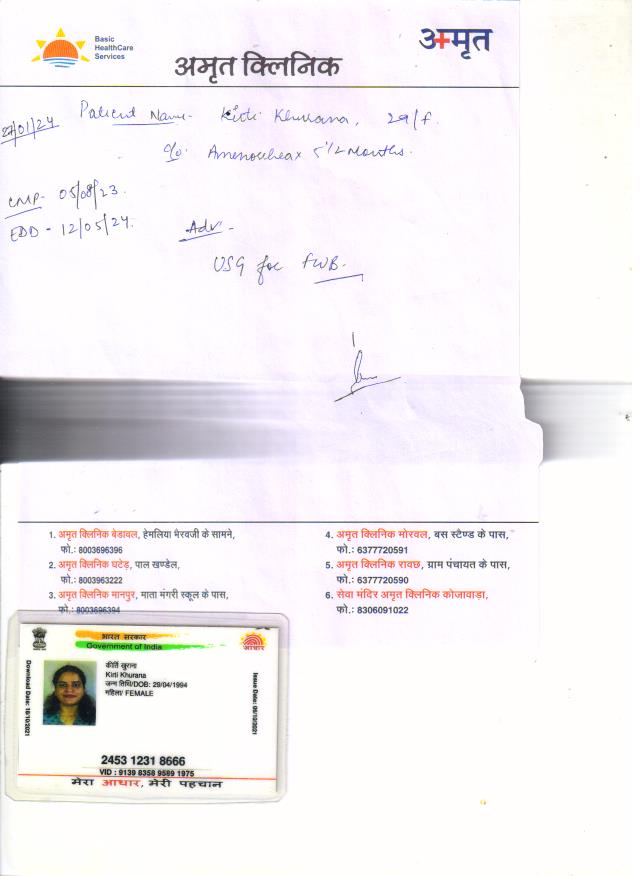 Basic
HealthCare
Services
अमृत
अमृत क्लिनिक
27/01/24
Patient Name - Kirti Khurana, 29/f.
c/o. Amenorrheax 5 1/2 Months.
LMP- 05/08/23.
EDD - 12/05/24.
Adv -
USG for FWB.
1. अमृत क्लिनिक बेडावल, हेमलिया भेरवजी के सामने,
फो.: 8003696396
2. अमृत क्लिनिक घटेड़, पाल खण्डेल,
फो.: 8003963222
3. अमृत क्लिनिक मानपुर, माता मंगरी स्कूल के पास,
फो.: 8003696394
4. अमृत क्लिनिक मोरवल, बस स्टैण्ड के पास,
फो.: 6377720591
5. अमृत क्लिनिक रावछ, ग्राम पंचायत के पास,
फो.: 6377720590
6. सेवा मंदिर अमृत क्लिनिक कोजावाड़ा,
फो.: 8306091022
भारत सरकार
Government of India
आधार
Download Date: 18/10/2021
कीर्ति खुराना
Kirti Khurana
जन्म तिथि/DOB: 29/04/1994
महिला/ FEMALE
Issue Date: 05/10/2021
2453 1231 8666
VID : 9139 8358 9589 1975
मेरा आधार, मेरी पहचान